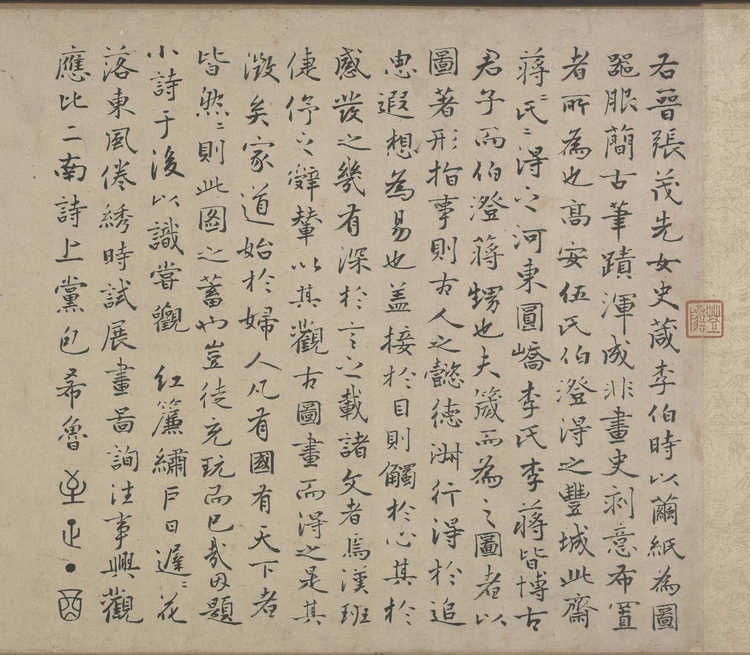 右晉張茂先女史箴李伯時以繭紙為圖
器服簡古筆蹟渾成非畫史刻意布置
者所為也髙安伍氏伯澄得之豐城此齋
蔣氏〻得之河東圓嶠李氏李蔣皆博古
君子而伯澄蔣甥也夫箴而為之圖者以
圖著形指事則古人之懿德淑行得於追
思遐想為易也盖接於目則觸於心其於
感發之幾有深於言之載諸文者焉漢班
倢伃之辭輦以其觀古圖畫而得之是其
徵矣家道始於婦人凡有國有天下者
皆然〻則此圖之蓄也豈徒充玩而已哉因題
小詩于後以識嘗觀 紅簾繡戶日遲〻花
落東風倦綉時試展畫啚詢往事興觀
應比二南詩上黨包希魯 至正